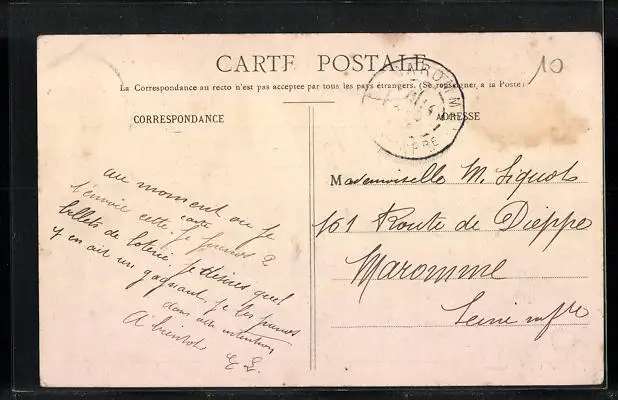 10
CARTE POSTALE
La Correspondance au recto n'est pas acceptée par tous les pays étrangers. (Se renseigner à la Poste)
MAROMME
CORRESPONDANCE
ADRESSE
au moment ou je
t'envoie cette carte je prends 2
billets de loterie, je désires quel
y en ait un gagnant, je les prends
dans cette intention
A bientot
Mademoiselle M. Siquot
101 Route de Dieppe
Maromme
Seine infre